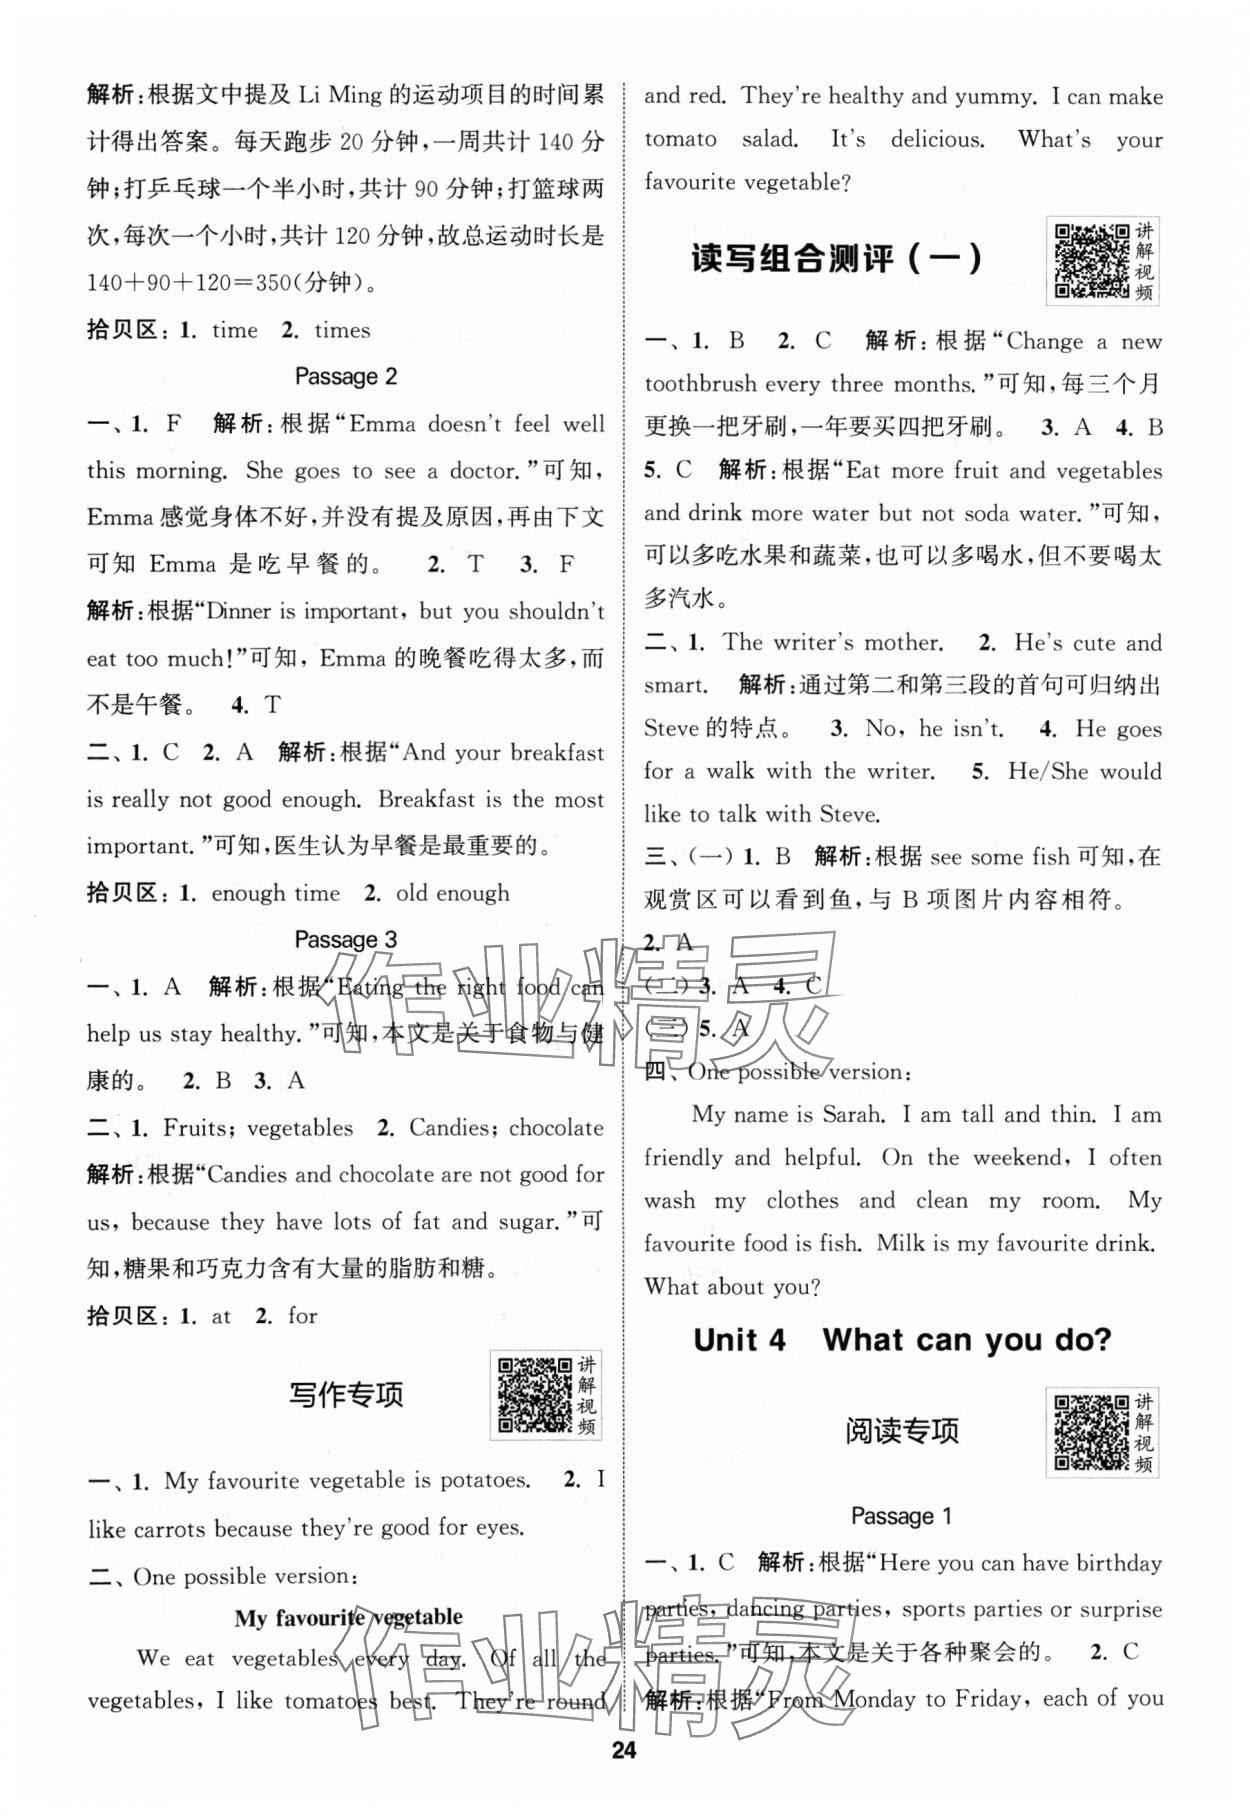 解析:根据文中提及 Li Ming 的运动项目的时间累
计得出答案。每天跑步 20 分钟,一周共计 140 分
钟;打乒乓球一个半小时,共计 90 分钟;打篮球两
次,每次一个小时,共计 120 分钟,故总运动时长是
140+90+120=350(分钟)。
拾贝区: 1. time 2. times
Passage 2
一、1. F 解析:根据“Emma doesn't feel well
this morning. She goes to see a doctor.”可知,
Emma 感觉身体不好,并没有提及原因,再由下文
可知 Emma 是吃早餐的。 2. T 3. F
解析:根据“Dinner is important, but you shouldn't
eat too much!”可知, Emma 的晚餐吃得太多,而
不是午餐。 4. T
二、1. C 2. A 解析:根据“And your breakfast
is really not good enough. Breakfast is the most
important.”可知,医生认为早餐是最重要的。
拾贝区: 1. enough time 2. old enough
Passage 3
一、1. A 解析:根据“Eating the right food can
help us stay healthy.”可知,本文是关于食物与健
康的。 2. B 3. A
二、1. Fruits; vegetables 2. Candies; chocolate
解析:根据“Candies and chocolate are not good for
us, because they have lots of fat and sugar.”可
知,糖果和巧克力含有大量的脂肪和糖。
拾贝区: 1. at 2. for
写作专项
讲解视频
一、1. My favourite vegetable is potatoes. 2. I
like carrots because they're good for eyes.
二、One possible version:
My favourite vegetable
We eat vegetables every day. Of all the
vegetables, I like tomatoes best. They're round
and red. They're healthy and yummy. I can make
tomato salad. It's delicious. What's your
favourite vegetable?
读写组合测评(一)
讲解视频
一、1. B 2. C 解析:根据“Change a new
toothbrush every three months.”可知,每三个月
更换一把牙刷,一年要买四把牙刷。 3. A 4. B
5. C 解析:根据“Eat more fruit and vegetables
and drink more water but not soda water.”可知,
可以多吃水果和蔬菜,也可以多喝水,但不要喝太
多汽水。
二、1. The writer's mother. 2. He's cute and
smart. 解析:通过第二和第三段的首句可归纳出
Steve的特点。 3. No, he isn't. 4. He goes
for a walk with the writer. 5. He/She would
like to talk with Steve.
三、(一) 1. B 解析:根据 see some fish 可知,在
观赏区可以看到鱼,与 B 项图片内容相符。
2. A
(二) 3. A 4. C
(三) 5. A
四、One possible version:
My name is Sarah. I am tall and thin. I am
friendly and helpful. On the weekend, I often
wash my clothes and clean my room. My
favourite food is fish. Milk is my favourite drink.
What about you?
Unit 4 What can you do?
阅读专项
讲解视频
Passage 1
一、1. C 解析:根据“Here you can have birthday
parties, dancing parties, sports parties or surprise
parties.”可知,本文是关于各种聚会的。 2. C
解析:根据“From Monday to Friday, each of you
作业精灵
作业精灵
24